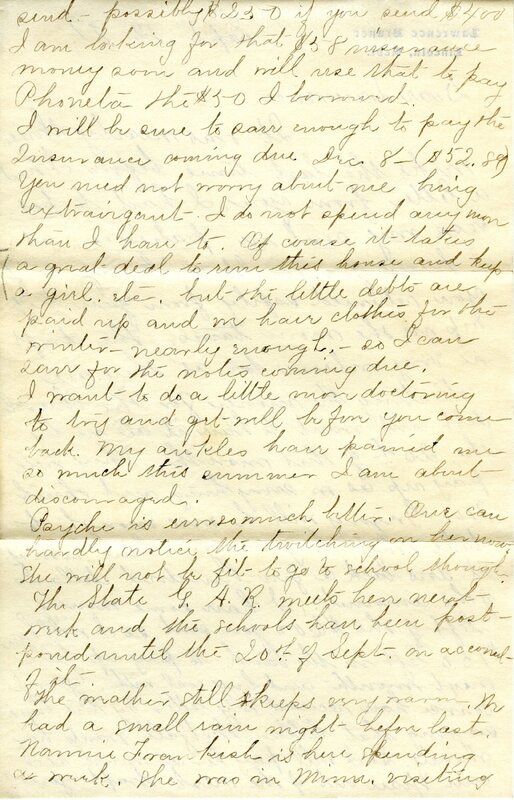 send. possibly $250 if you send $400
I am looking for that $58 insurance
money soon and will use that to pay
Phoneta the $50 I borrowed.
I will be sure to save enough to pay the
Insurance coming due Dec 8 - ($52.89)
You need not worry about me being
extravigant. I do not spend any more
than I have to. Of course it takes
a great deal to run this house and keep
a girl. etc. but the little debts are
paid up and we have clothes for the
winter - nearly enough, - so I can
save for the notes coming due.
I want to do a little more doctoring
to try and get well before you come
back. My ankles have pained me
so much this summer I am about
discouraged.
Psyche is ever so much better. One can
hardly notice the twitching on her now.
She will not be fit to go to school though.
The State G. A. R. meets here next
week and the schools have been post-
poned until the 20th of Sept. on account
of it.
The weather still keeps very warm. We
had a small rain night before last.
Nannie Frankish is here spending
a week. She was in Minn. visiting
Lawrence Bruner
Lincoln, Neb.